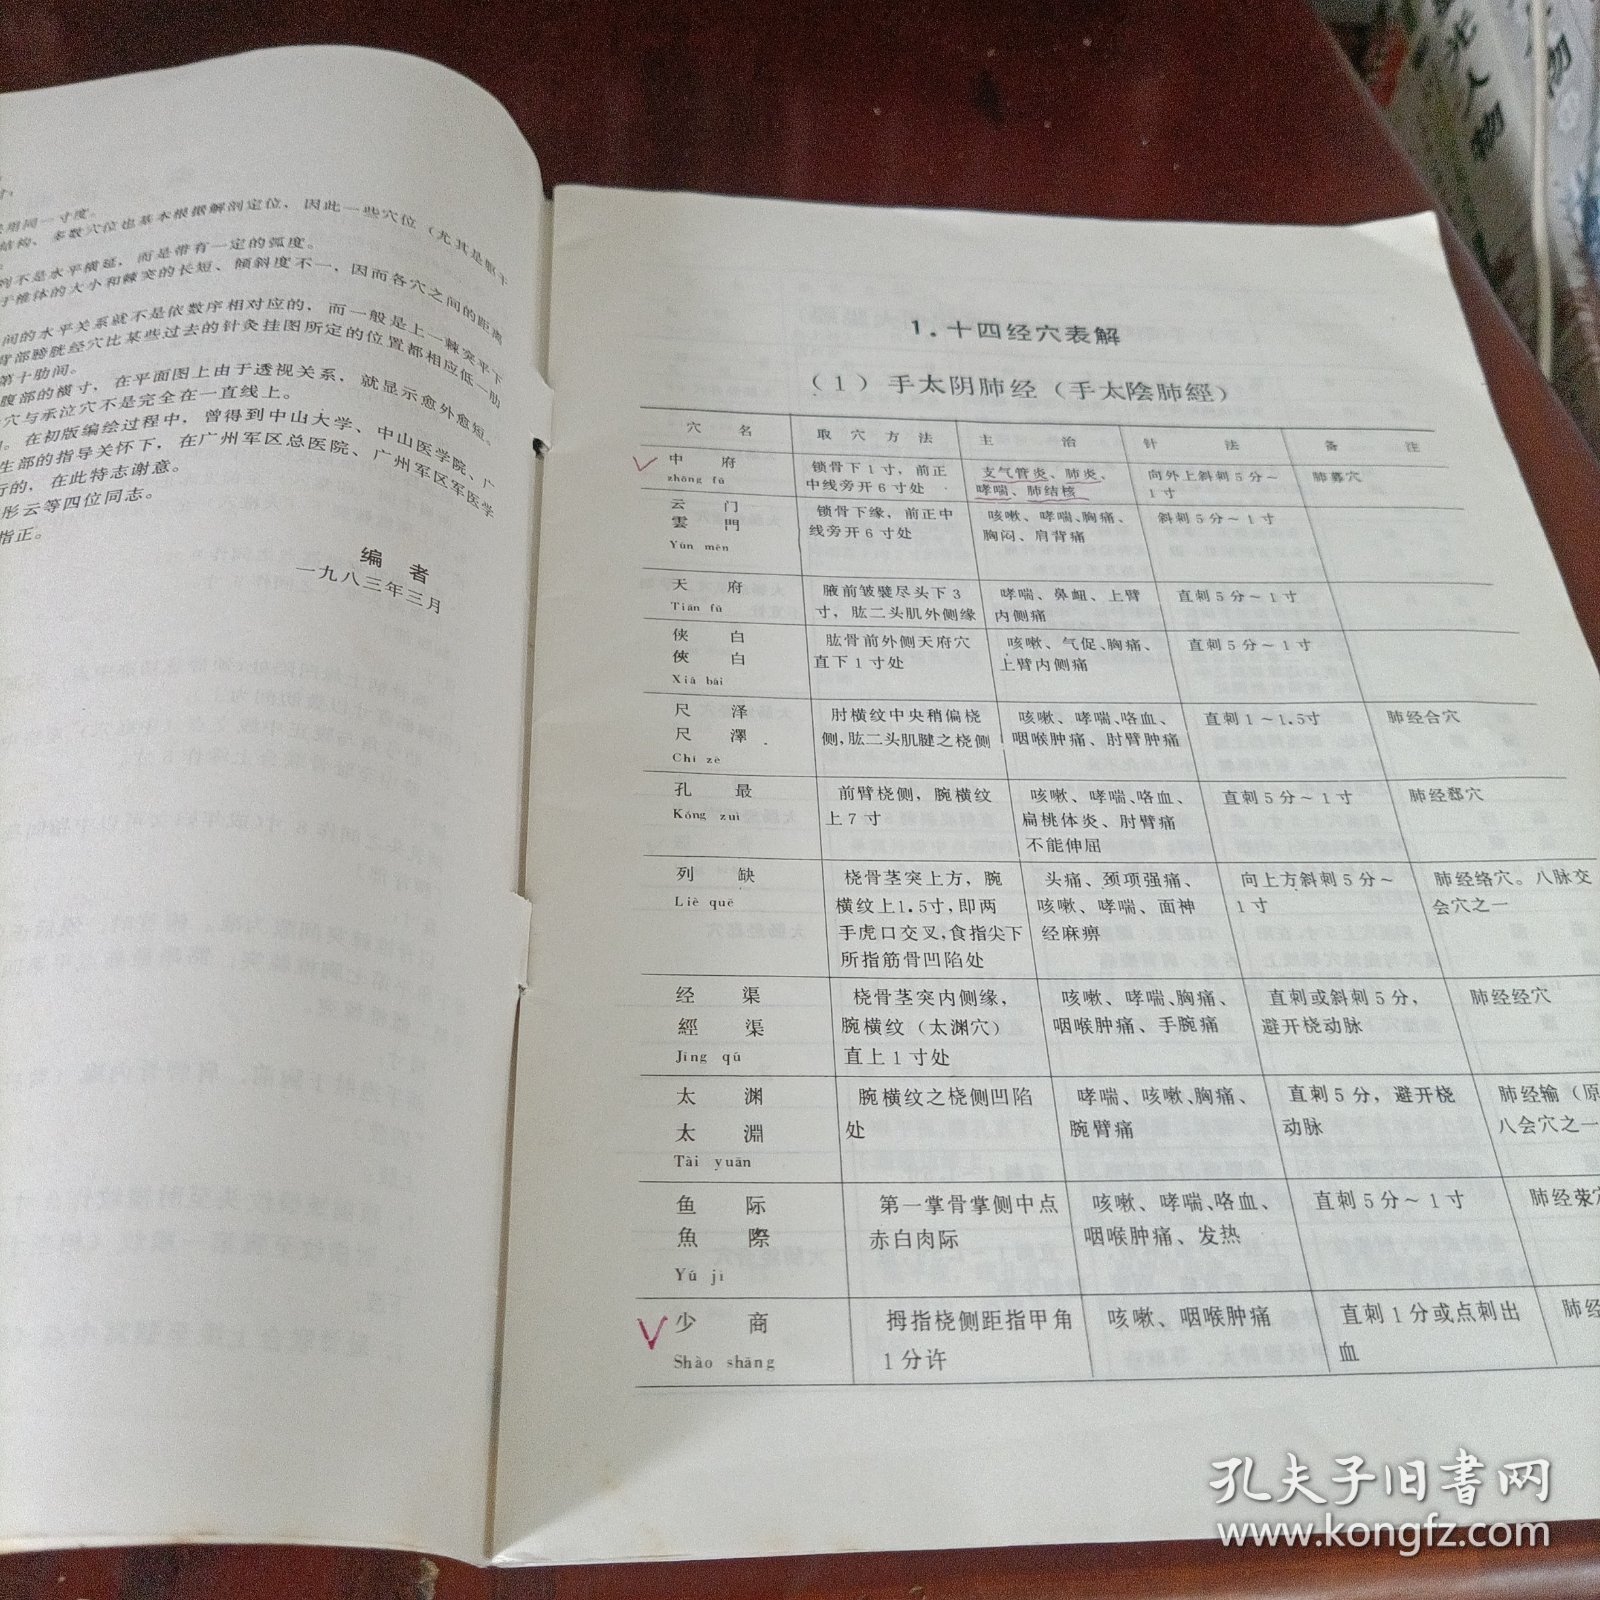 用同一寸度。
结构、多数穴位也基本根据解剖定位，因此一些穴位（尤其是躯干
不是水平横延，而是带有一定的弧度。
于椎体的大小和棘突的长短、倾斜度不一，因而各穴之间的距离
间的水平关系就不是依数序相对应的，而一般是上一棘突平下
背部膀胱经穴比某些过去的针灸挂图所定的位置都相应低一肋
第十肋间。
腹部的横寸，在平面图上由于透视关系，就显示愈外愈短。
穴与承泣穴不是完全在一直线上。
在初版编绘过程中，曾得到中山大学、中山医学院、广
生部的指导关怀下，在广州军区总医院、广州军区军医学
行的，在此特志谢意。
彤云等四位同志。
指正。
编 者
一九八三年三月
1.十四经穴表解
（1）手太阴肺经（手太陰肺經）
穴 名 取 穴 方 法 主 治 针 法 备 注
中 府 锁骨下1寸，前正 支气管炎、肺炎、 向外上斜刺5分～ 肺募穴
zhōng fǔ 中线旁开6寸处 哮喘、肺结核 1寸
云 门 锁骨下缘，前正中 咳嗽、哮喘、胸痛、 斜刺5分～1寸
雲 門 线旁开6寸处 胸闷、肩背痛
Yún mén
天 府 腋前皱襞尽头下3 哮喘、鼻衄、上臂 直刺5分～1寸
Tiān fǔ 寸，肱二头肌外侧缘 内侧痛
侠 白 肱骨前外侧天府穴 咳嗽、气促、胸痛、 直刺5分～1寸
俠 白 直下1寸处 上臂内侧痛
Xiá bái
尺 泽 肘横纹中央稍偏桡 咳嗽、哮喘、咯血、 直刺1～1.5寸 肺经合穴
尺 澤 侧，肱二头肌腱之桡侧 咽喉肿痛、肘臂肿痛
Chǐ zé
孔 最 前臂桡侧，腕横纹 咳嗽、哮喘、咯血、 直刺5分～1寸 肺经郄穴
Kǒng zuì 上7寸 扁桃体炎、肘臂痛
不能伸屈
列 缺 桡骨茎突上方，腕 头痛、颈项强痛、 向上方斜刺5分～ 肺经络穴。八脉交
Liè quē 横纹上1.5寸，即两 咳嗽、哮喘、面神 1寸 会穴之一
手虎口交叉，食指尖下 经麻痹
所指筋骨凹陷处
经 渠 桡骨茎突内侧缘， 咳嗽、哮喘、胸痛、 直刺或斜刺5分， 肺经经穴
經 渠 腕横纹（太渊穴） 咽喉肿痛、手腕痛 避开桡动脉
Jīng qú 直上1寸处
太 渊 腕横纹之桡侧凹陷 哮喘、咳嗽、胸痛、 直刺5分，避开桡 肺经输（原
太 淵 处 腕臂痛 动脉 八会穴之一
Tài yuān
鱼 际 第一掌骨掌侧中点 咳嗽、哮喘、咯血、 直刺5分～1寸 肺经荥穴
魚 際 赤白肉际 咽喉肿痛、发热
Yú jì
少 商 拇指桡侧距指甲角 咳嗽、咽喉肿痛 直刺1分或点刺出 肺经
Shào shāng 1分许 血
孔夫子旧书网
www.kongfz.com